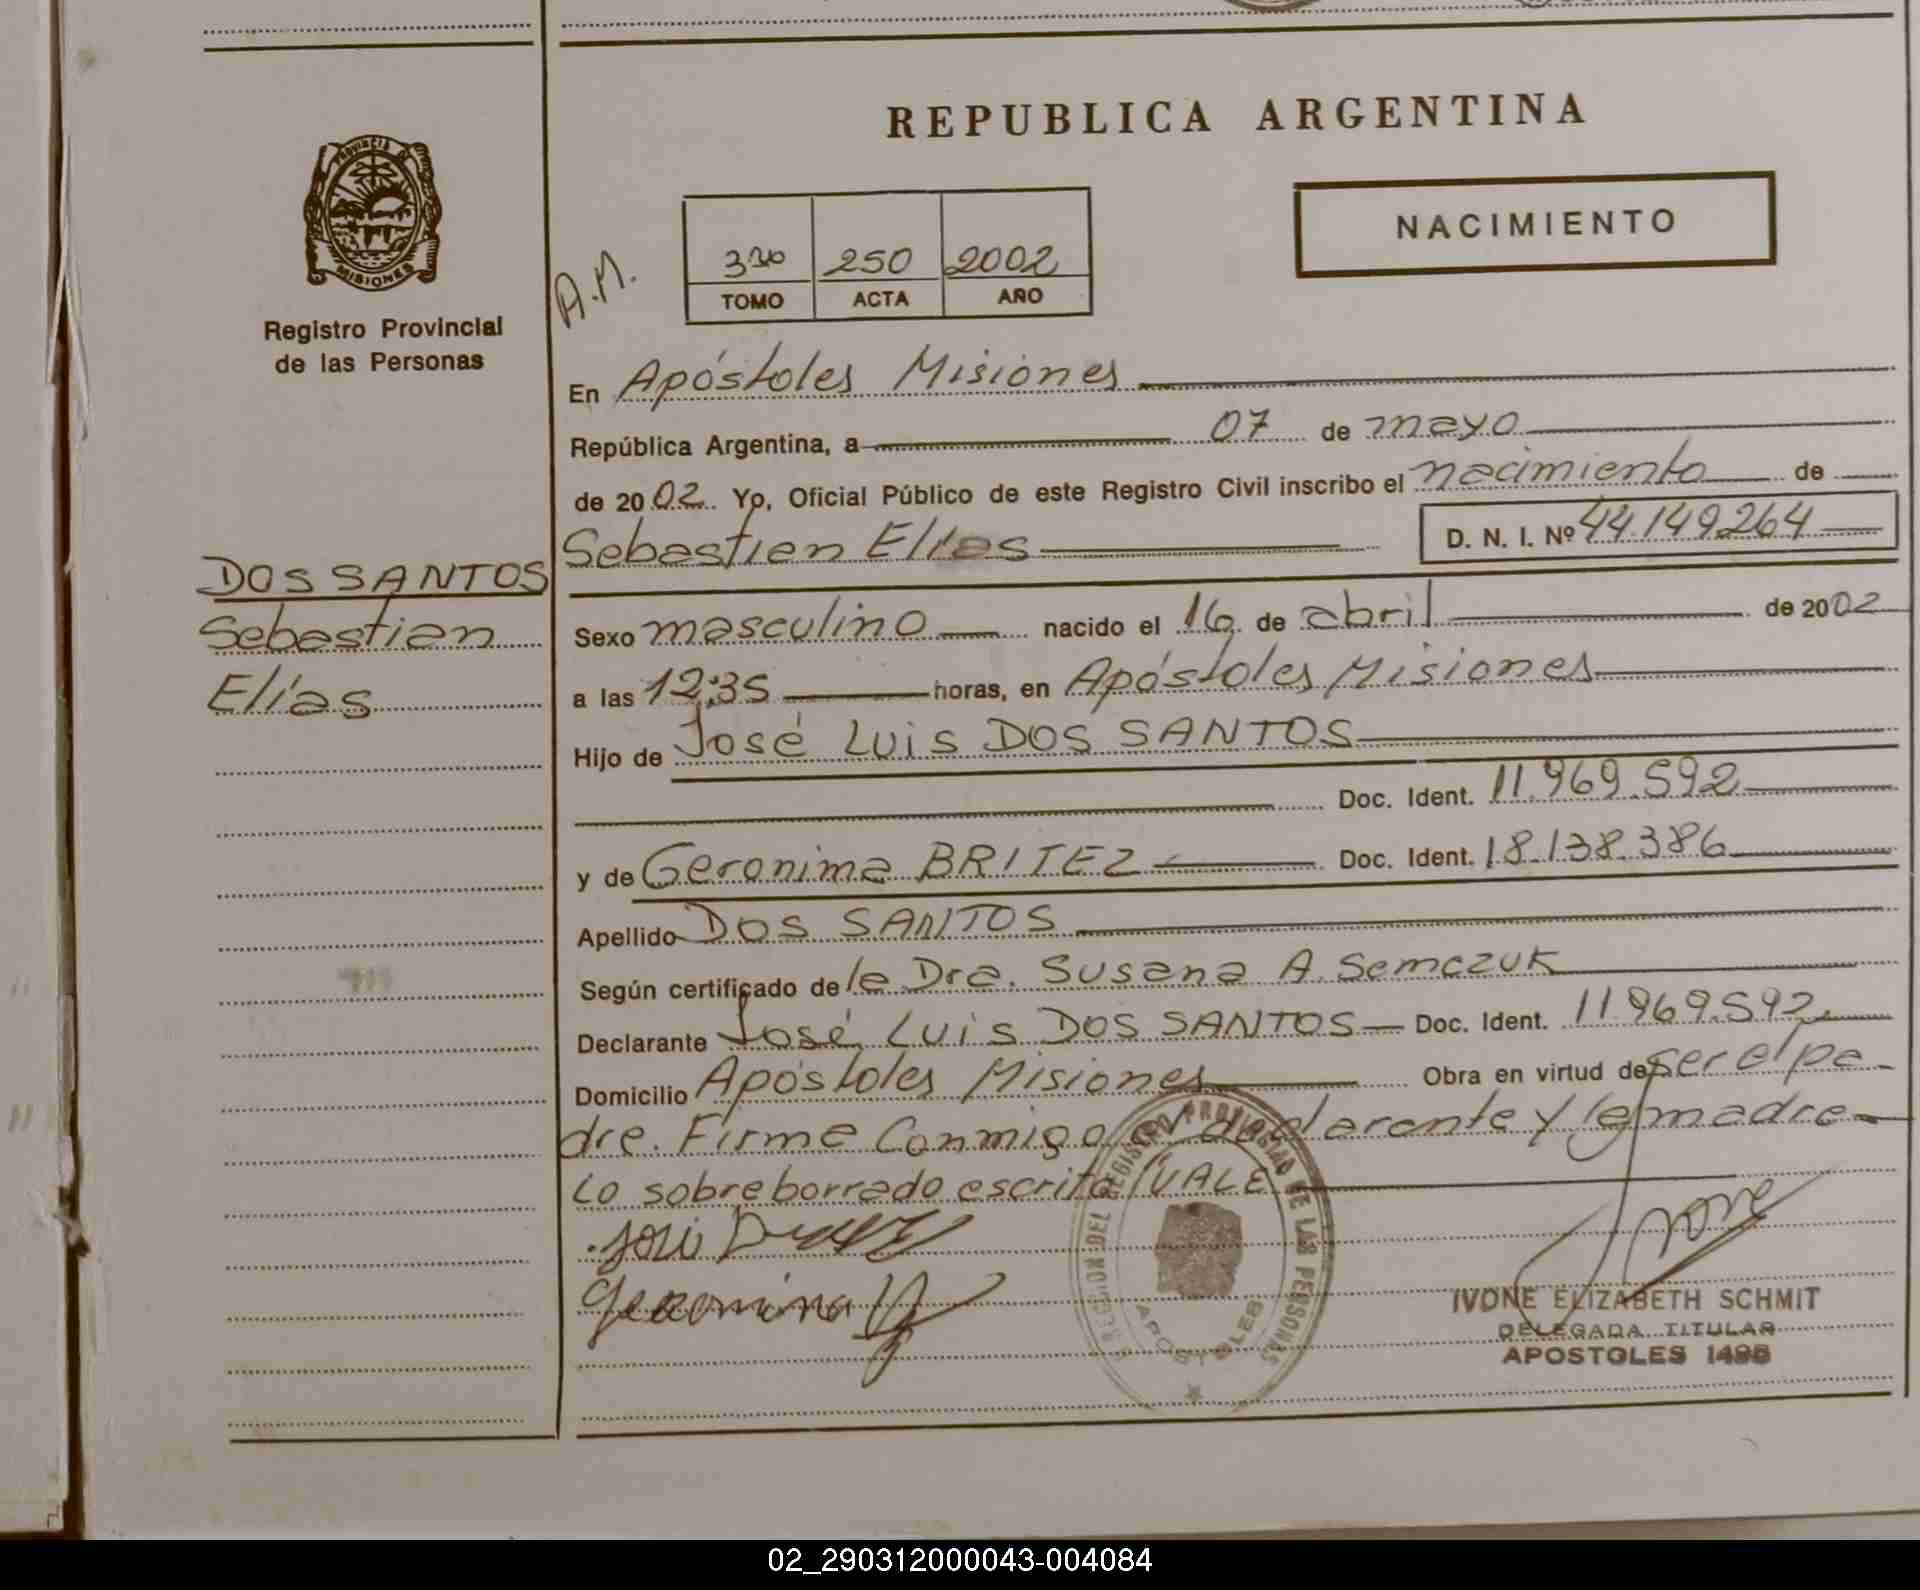 REPUBLICA ARGENTINA
PROVINCIA DE
MISIONES
Registro Provincial
de las Personas
NACIMIENTO
A.M.
330 250 2002
TOMO ACTA AÑO
En Apóstoles Misiones
República Argentina, a 07 de mayo
de 2002. Yo, Oficial Público de este Registro Civil inscribo el nacimiento de
Sebastian Elias D. N. I. Nº 44.149.264
DOS SANTOS
Sebastian
Elías
Sexo masculino nacido el 16 de abril de 2002
a las 12:35 horas, en Apóstoles Misiones
Hijo de José Luis DOS SANTOS
Doc. Ident. 11.969.592
y de Geronima BRITEZ Doc. Ident. 18.138.386
Apellido DOS SANTOS
Según certificado de la Dra. Susana A. Semczuk
Declarante José Luis DOS SANTOS Doc. Ident. 11.969.592
Domicilio Apóstoles Misiones Obra en virtud de ser el pa-
dre. Firma Conmigo el declarante y la madre
Lo sobreborrado escrito VALE
José
Geronima
IVONE ELIZABETH SCHMIT
DELEGADA TITULAR
APOSTOLES 1495
DEL REGISTRO PROVINCIAL DE LAS PERSONAS
APOSTOLES
02_290312000043-004084